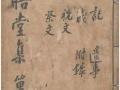 記 遺事
附錄
祝文
祭文
堂集 單